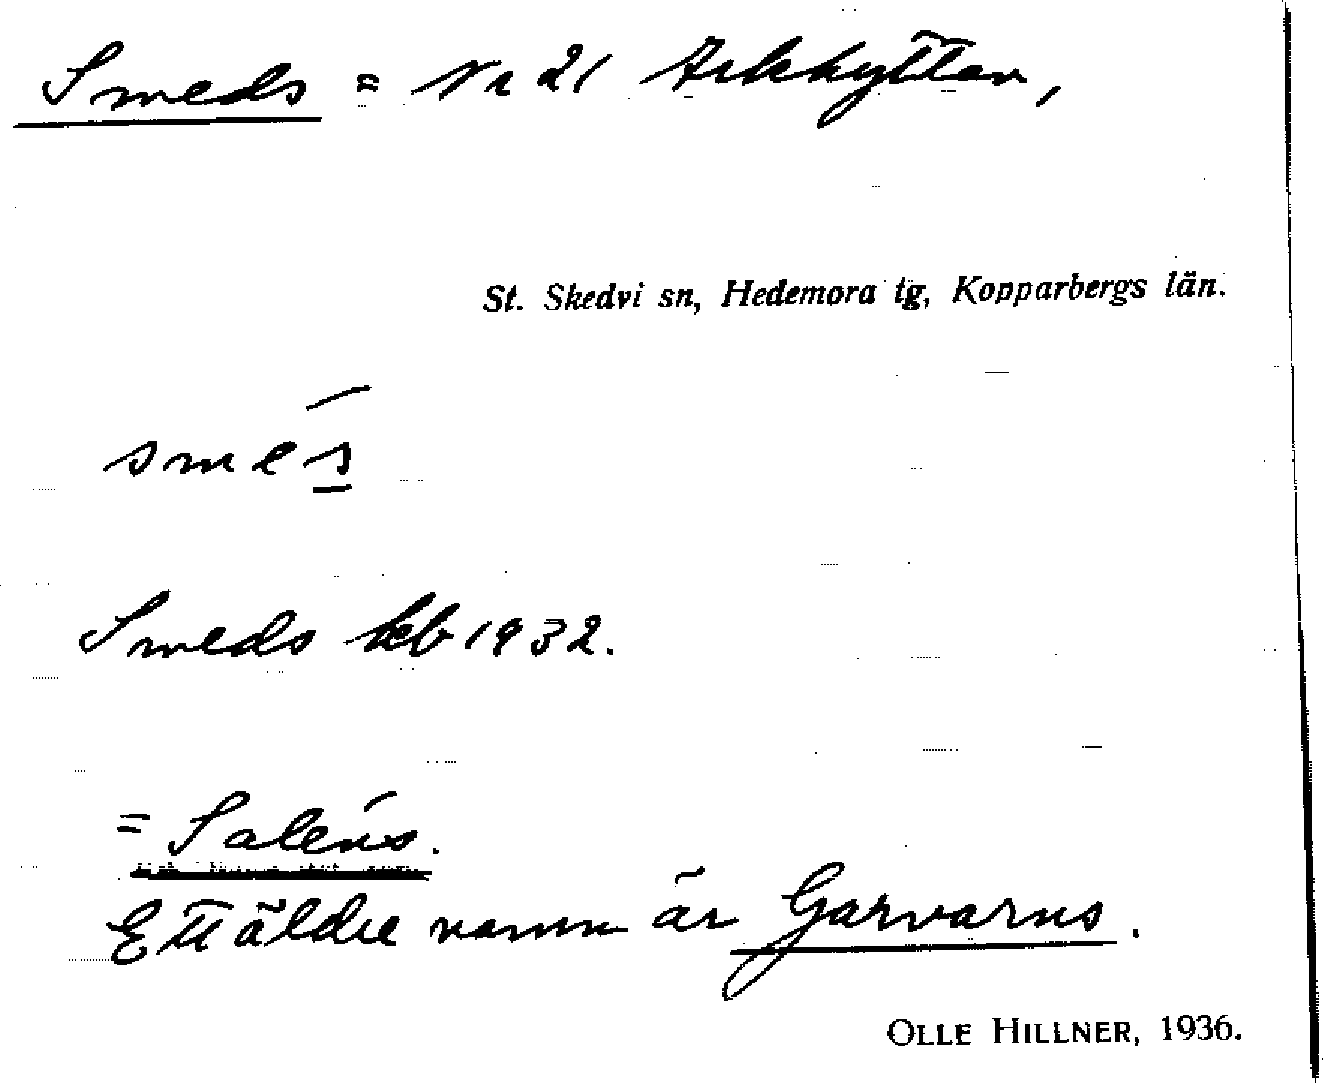 Smeds = Nr 21 Arkhyttan,
St. Skedvi sn, Hedemora tg, Kopparbergs län.
smés
Smeds kb 1932.
= Saléns.
Ett äldre namn är Garvarns.
OLLE HILLNER, 1936.